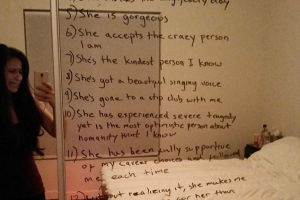 baby
5) She is gorgeous
6) She accepts the crazy person
I am
7) She's the kindest person I know
8) She's got a beautiful singing voice
9) She's gone to a strip club with me
10) She has experienced severe tragedy
yet is the most optimistic person about
humanity that I know
11) She has been fully supportive
of my career choices and followed
me each time
12) without realizing it, she makes me
her than